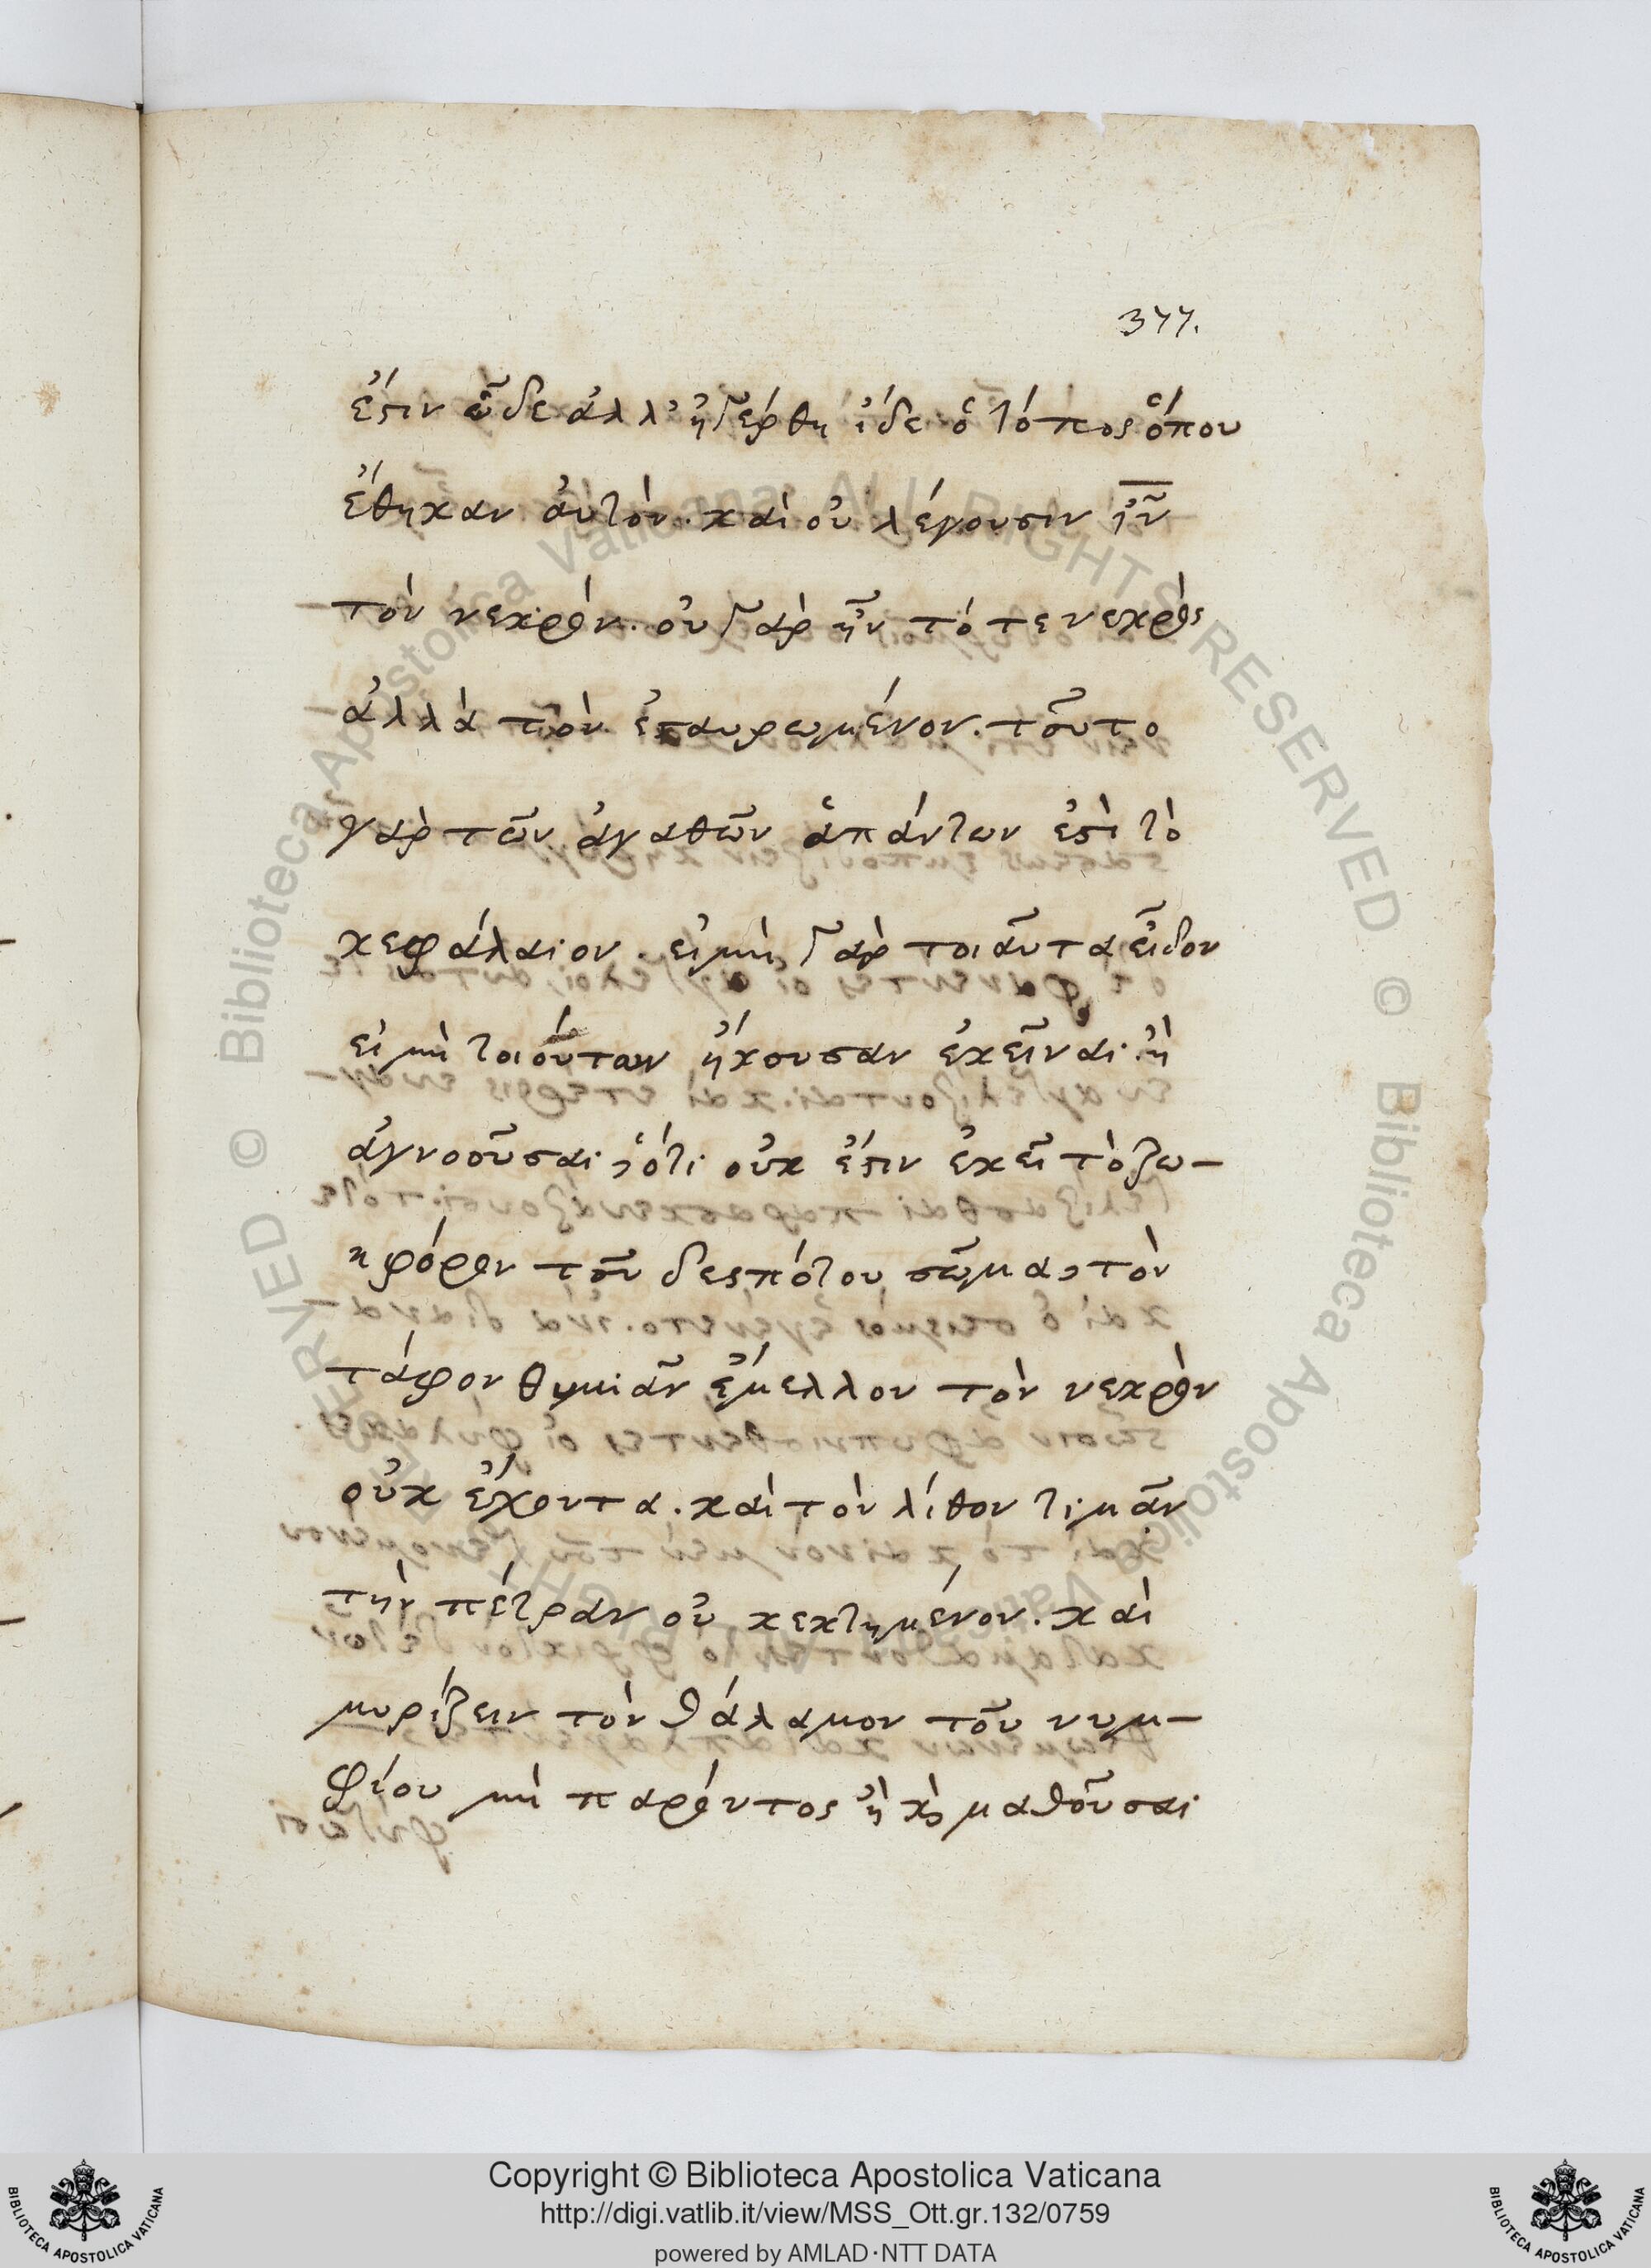 377.
ἔστιν ὧδε ἀλλ' ἠγέρθη ἴδε ὁ τόπος ὅπου
ἔθηκαν ἀυτὸν. καὶ οὐ λέγουσιν ἰν͂
τὸν νεκρὸν. οὐ γὰρ ἦν τότε νεκρὸς
ἀλλὰ τὸν ἐσταυρωμένον. τοῦτο
γὰρ τῶν ἀγαθῶν ἁπάντων ἐστὶ τὸ
κεφάλαιον. εἰ μὴ γὰρ τοιαῦτα εἶδον
εἰ μὴ τοιούτων ἤκουσαν ἐκεῖναι. ἢ
ἀγνοοῦσαι, ὅτι οὐκ ἔστιν ἐκεῖ τὸ ζω-
ηφόρον τοῦ δεσπότου σῶμα, τὸν
τάφον θυμιᾶν ἔμελλον τὸν νεκρὸν
οὐκ ἔχοντα. καὶ τὸν λίθον τιμᾶν
τὴν πέτραν οὐ κεκτημένον. καὶ
μυρίζειν τὸν θάλαμον τοῦ νυμ-
φίου μὴ παρόντος ἢ κ̣ μαθοῦσαι
Copyright © Biblioteca Apostolica Vaticana
http://digi.vatlib.it/view/MSS_Ott.gr.132/0759
powered by AMLAD·NTT DATA
BIBLIOTECA APOSTOLICA VATICANA
BIBLIOTECA APOSTOLICA VATICANA